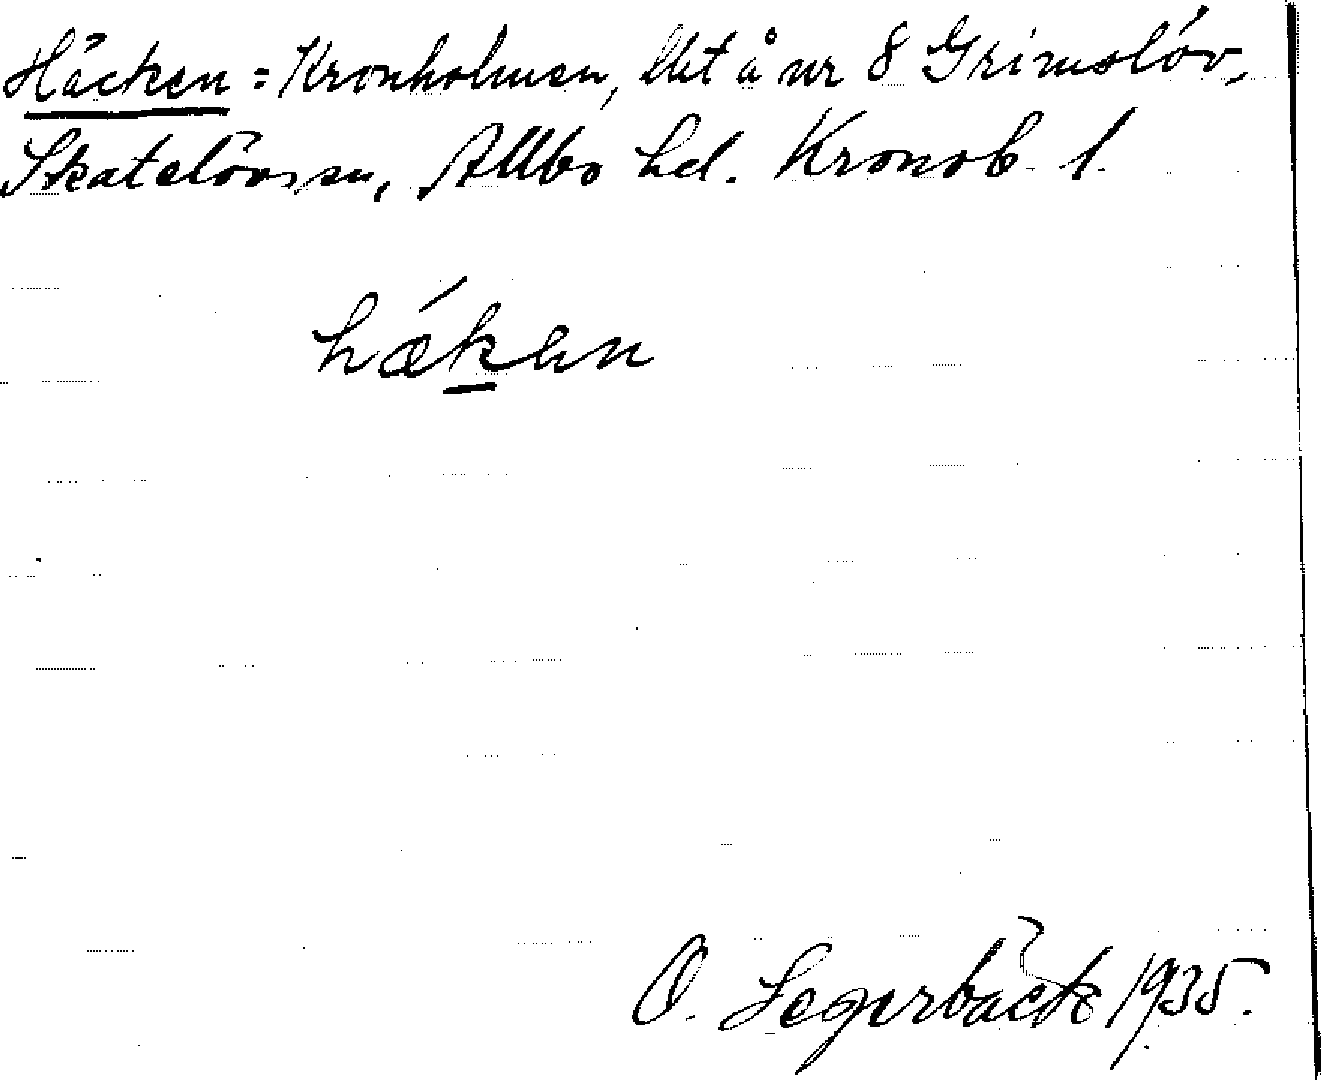 Häcken = Kronholmen, lht å nr 8 Grimslöv,
Skatelövs sn, Allbo hd. Kronob. l.
hǽken
O. Segerbäck 1935.